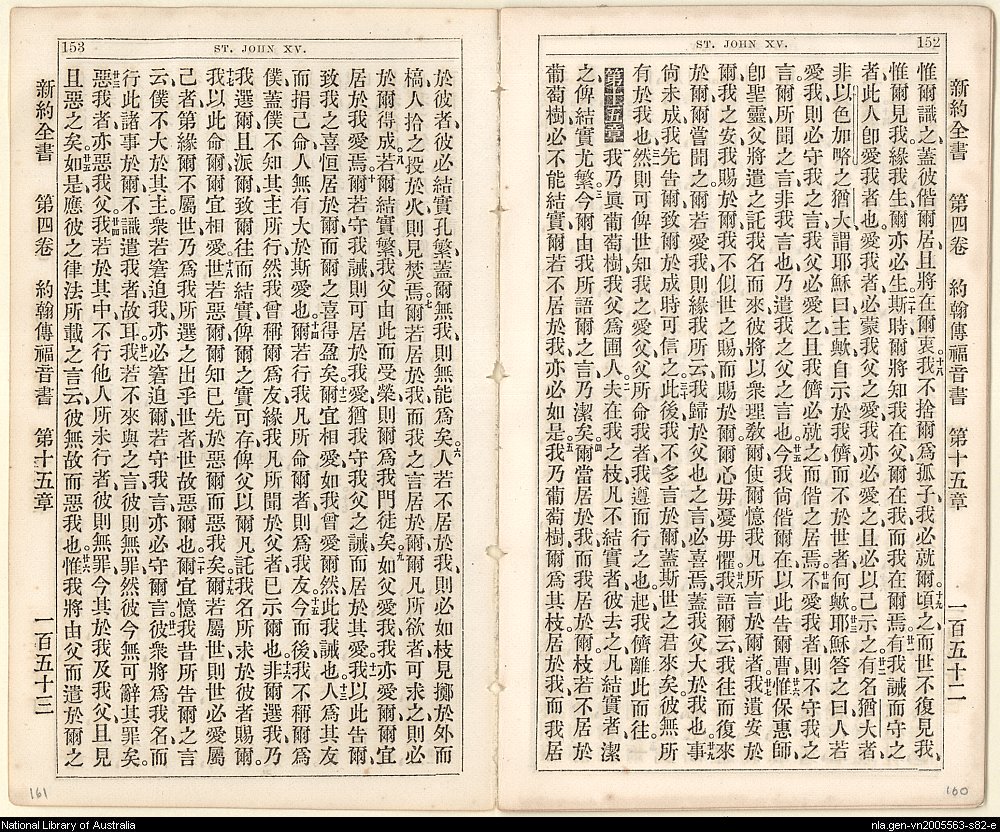 152
ST. JOHN XV.
新約全書 第四卷 約翰傳福音書 第十五章 一百五十二
惟爾識之、蓋彼偕爾居、且將在爾衷。十八我不捨爾爲孤子、我必就爾。十九頃之、而世不復見我、
惟爾見我、緣我生、爾亦必生。二十斯時爾將知我在父、爾在我、而我在爾焉。廿一有我誡而守之
者、此人卽愛我者也。愛我者必蒙我父之愛、我亦必愛之、且必以己示之。廿二有名猶大者
非以色加略之猶大、謂耶穌曰、主歟、自示於我儕、而不於世者何歟。廿三耶穌答之曰、人若
愛我、則必守我之言、我父必愛之、且我儕必就之、而偕之居焉。廿四不愛我者、則不守我之
言。爾所聞之言、非我言也、乃遣我之父之言也。廿五今我尚偕爾在、以此告爾曹。廿六惟保惠師、
卽聖靈、父將遣之託我名而來、彼將以衆理敎爾、使爾憶我凡所言於爾者。廿七我遺安於
爾、我之安我賜於爾、我不似世之賜而賜於爾。爾心毋憂毋懼。廿八我語爾云、我往而復來
於爾、爾嘗聞之。爾若愛我、則緣我所云我歸於父也之言、必喜焉、蓋我父大於我也。廿九事
尚未成、我先告爾、致爾於成時可信之。三十此後我不多言於爾、蓋斯世之君來矣、彼無所
有於我也。三一然則可俾世知我之愛父、父所命我者、我遵而行之也。起、我儕離此而往。
第十五章 我乃眞葡萄樹、我父爲圃人。二夫在我之枝、凡不結實者、彼去之、凡結實者、潔
之、俾結實尤繁。三今爾由我所語爾之言、乃潔矣。四爾當居於我、而我居於爾、枝若不居於
葡萄樹、必不能結實、爾若不居於我、亦必如是。五我乃葡萄樹、爾爲其枝。居於我、而我居
160
153
ST. JOHN XV.
於彼者、彼必結實孔繁、蓋爾無我、則無能爲矣。六人若不居於我、則必如枝見擲於外而
槁、人拾之、投於火、則見焚焉。七爾若居於我、而我之言居於爾、爾凡所欲者、可求之、則必
於爾得成。八若爾結實繁、我父由此而受榮、則爾爲我門徒矣。九如父愛我、我亦愛爾、爾宜
居於我愛焉。十爾若守我誡、則可居於我愛、猶我守我父之誡、而居於其愛。十一我以此告爾、
致我之喜恒居於爾、而爾之喜得盈矣。十二爾宜相愛、如我曾愛爾然、此我誡也。十三人爲其友
而捐己命、人無有大於斯愛也。十四爾若行我凡所命爾者、則爲我友。十五今而後我不稱爾爲
僕、蓋僕不知其主所行、然我曾稱爾爲友、緣我凡所聞於父者、已示爾也。十六非爾選我、乃
我選爾、且派爾、致爾往而結實、俾爾之實可存、俾父以爾凡託我名所求於彼者、賜爾。
十七我以此命爾、爾宜相愛。十八世若惡爾、爾知已先於惡爾而惡我矣。十九爾若屬世、則世必愛屬
己者、第緣爾不屬世、乃爲我所選之出乎世者、世故惡爾也。二十爾宜憶我昔所告爾之言
云、僕不大於其主。衆若窘迫我、亦必窘迫爾、若守我言、亦必守爾言。廿一彼衆將爲我名而
行此諸事於爾、不識遣我者故耳。廿二我若不來與之言、彼則無罪、然彼今無可辭其罪矣。
廿三惡我者、亦惡我父。廿四我若於其中不行他人所未行者、彼則無罪、今其於我及我父、且見
且惡之矣。廿五如是應彼之律法所載之言云、彼無故而惡我也。廿六惟我將由父而遣於爾之
新約全書 第四卷 約翰傳福音書 第十五章 一百五十三
161
National Library of Australia
nla.gen-vn2005563-s82-e